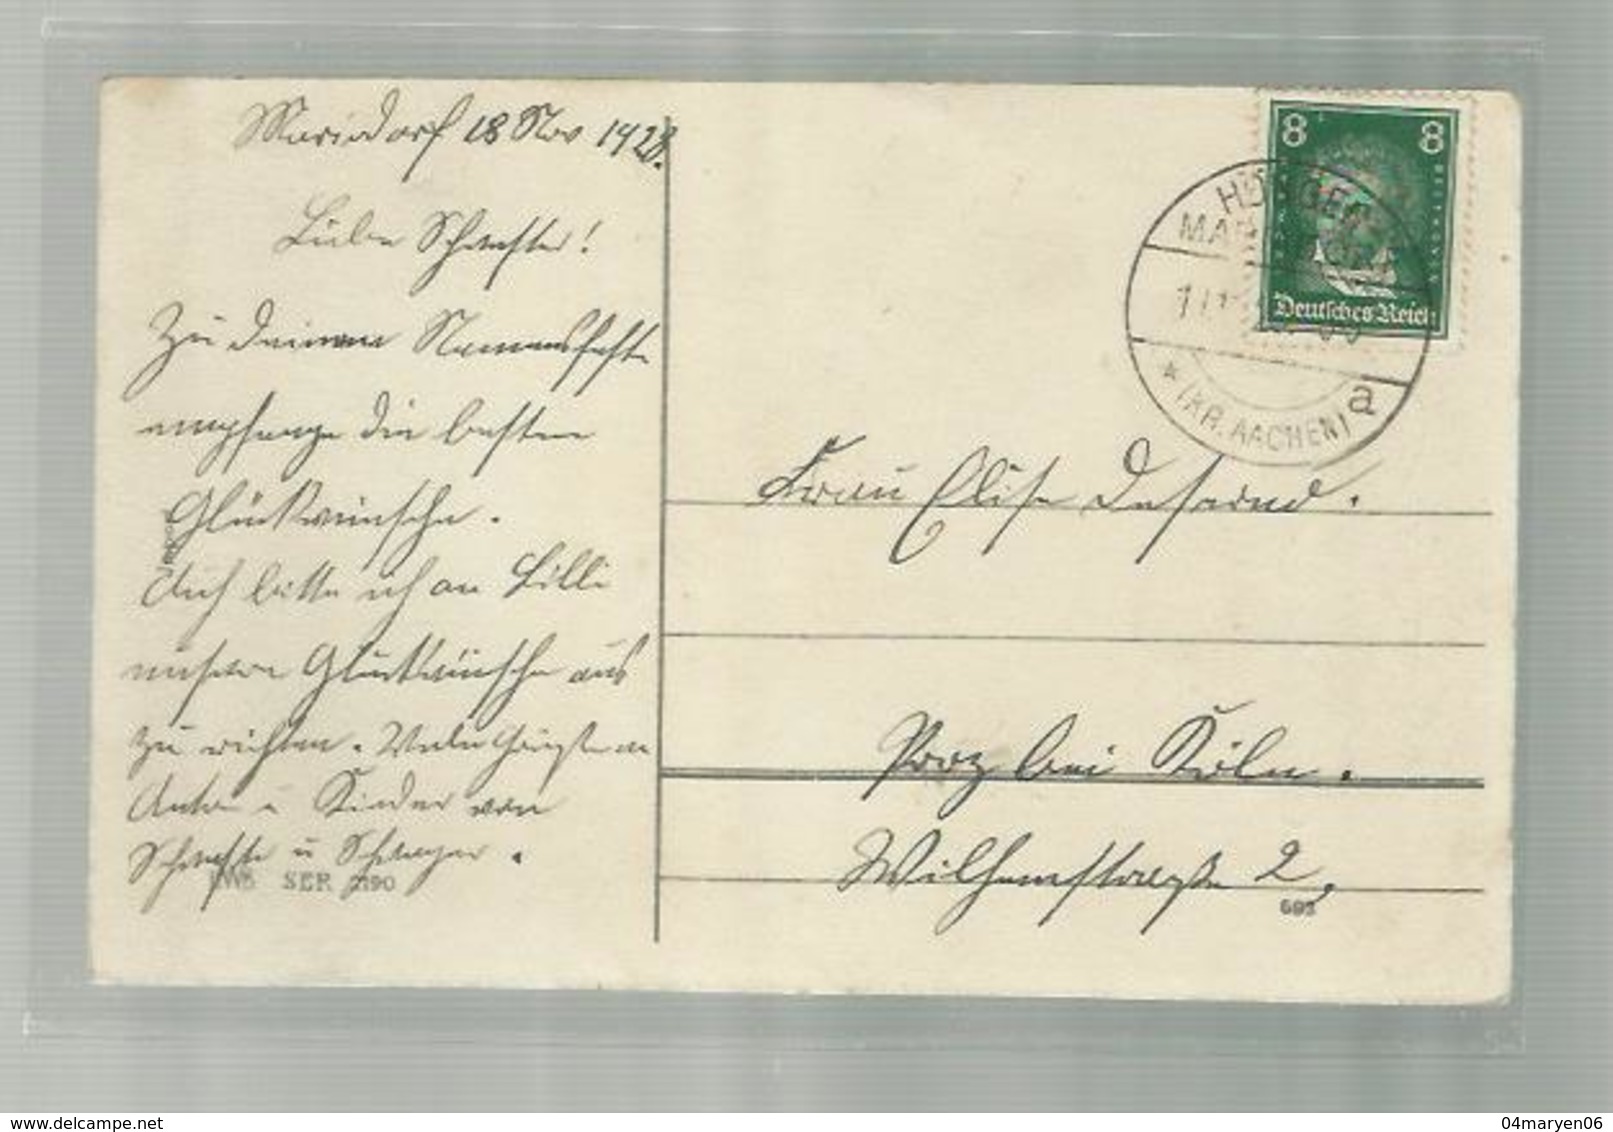 Mariadorf 18 Nov 1928.
Liebe Schwester!
Zu deinem Namensfeste
empfange die besten
Glückwünsche.
Auch bitte ich an Billi
unsere Glückwünsche aus
zu richten. Viele Grüße an
Anton u Kinder von
Schwester u Schwager.
SER 2190
8 8
Deutsches Reich
HÖNGEN
MARIADORF
* (KR. AACHEN) a
Frau Elise
Porz bei Köln.
Wilhemstraße 2,
693
delcampe.net
04maryen06